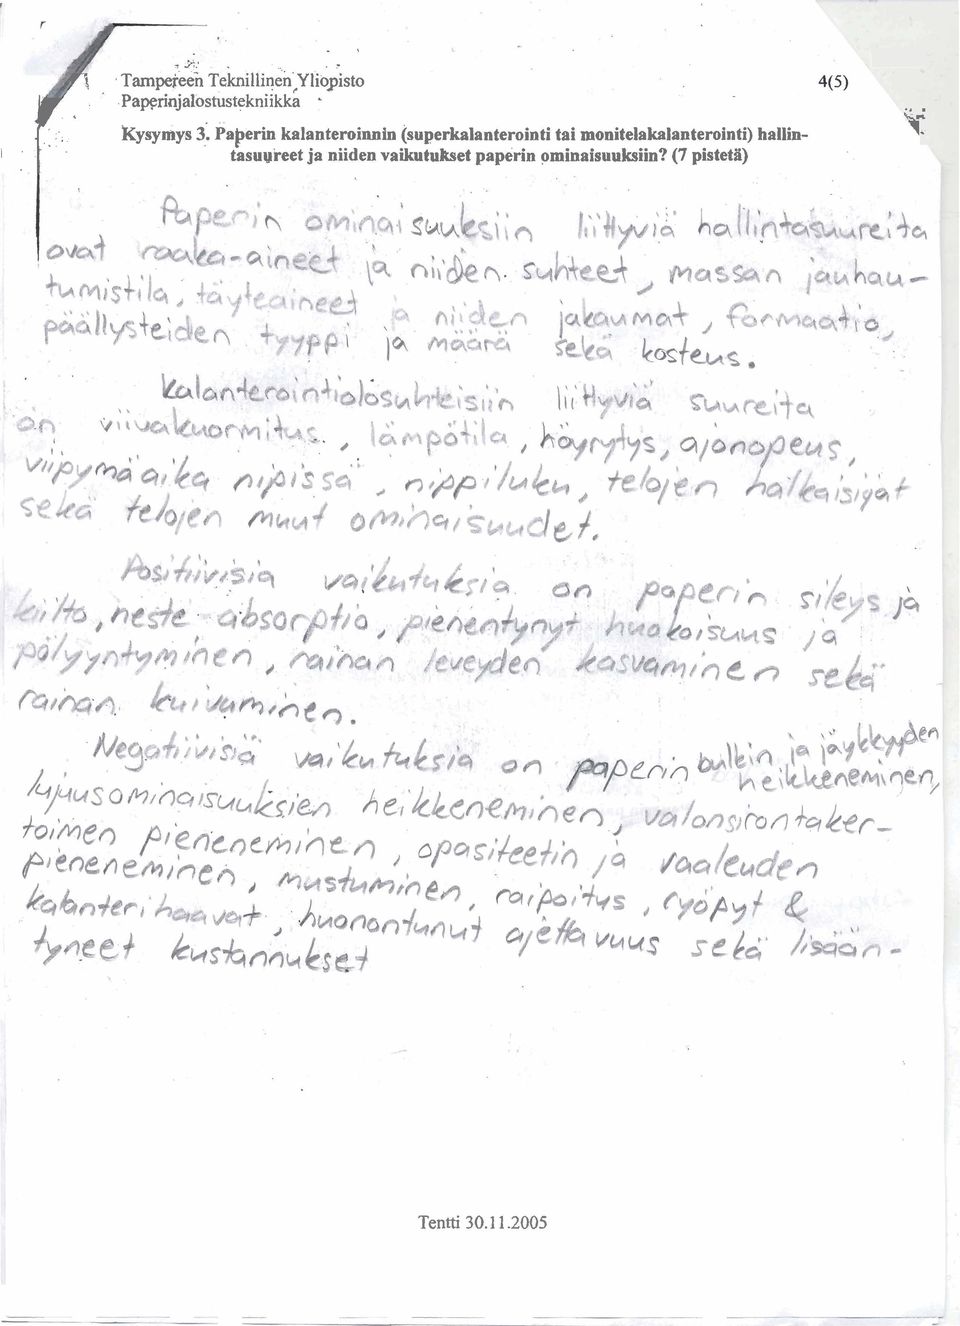 Tampereen Teknillinen Yliopisto
4(5)
Paperinjalostustekniikka
Kysymys 3. Paperin kalanteroinnin (superkalanterointi tai monitelakalanterointi) hallin-
tasuureet ja niiden vaikutukset paperin ominaisuuksiin? (7 pistetä)
Paperin ominaisuuksiin liittyviä hallintasuureita
ovat raaka-aineet ja niiden suhteet, massan jauhau-
tumistila, täyteaineet ja niiden jakaumat, formaatio,
päällysteiden tyyppi ja määrä sekä kosteus.
Kalanterointiolosuhteisiin liittyviä suureita
on viivakuormitus, lämpötila, höyrytys, ajonopeus,
viipymäaika nipissä, nippiluku, telojen halkaisijat
sekä telojen muut ominaisuudet.
Positiivisia vaikutuksia on paperin sileys ja
kiilto, neste-absorptio, pienentynyt huokoisuus ja
pölyyntyminen, rainan leveyden kasvaminen sekä
rainan kuivuminen.
Negatiivisiä vaikutuksia on paperin bulkin ja jäykkyyden
heikkeneminen,
lujuusominaisuuksien heikkeneminen, valonsirontaker-
toimen pieneneminen, opasiteetin ja vaaleuden
pieneneminen, mustuminen, raipoitus, ryöpyt &
kalanterihaavat, huonontunut ajettavuus sekä lisään-
tyneet kustannukset
Tentti 30.11.2005